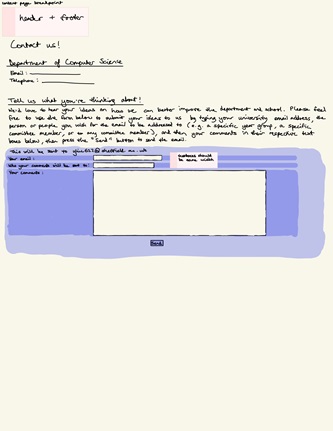 content page breakpoint
header + footer
Contact us!
Department of Computer Science
Email:
Telephone:
Tell us what you're thinking about!
We'd love to hear your ideas on how we can better improve the department and school. Please feel
free to use the form below to submit your ideas to us by typing your university email address, the
person or people you wish for the email to be addressed to (e.g. a specific year group, a specific
committee member, or to any committee member), and then your comments in their respective text
boxes below, then press the "Send" button to send the email.
This will be sent to @sheffield.ac.uk
Your email:
textboxes should
be same width
Who your comments will be sent to:
Your comments:
Send